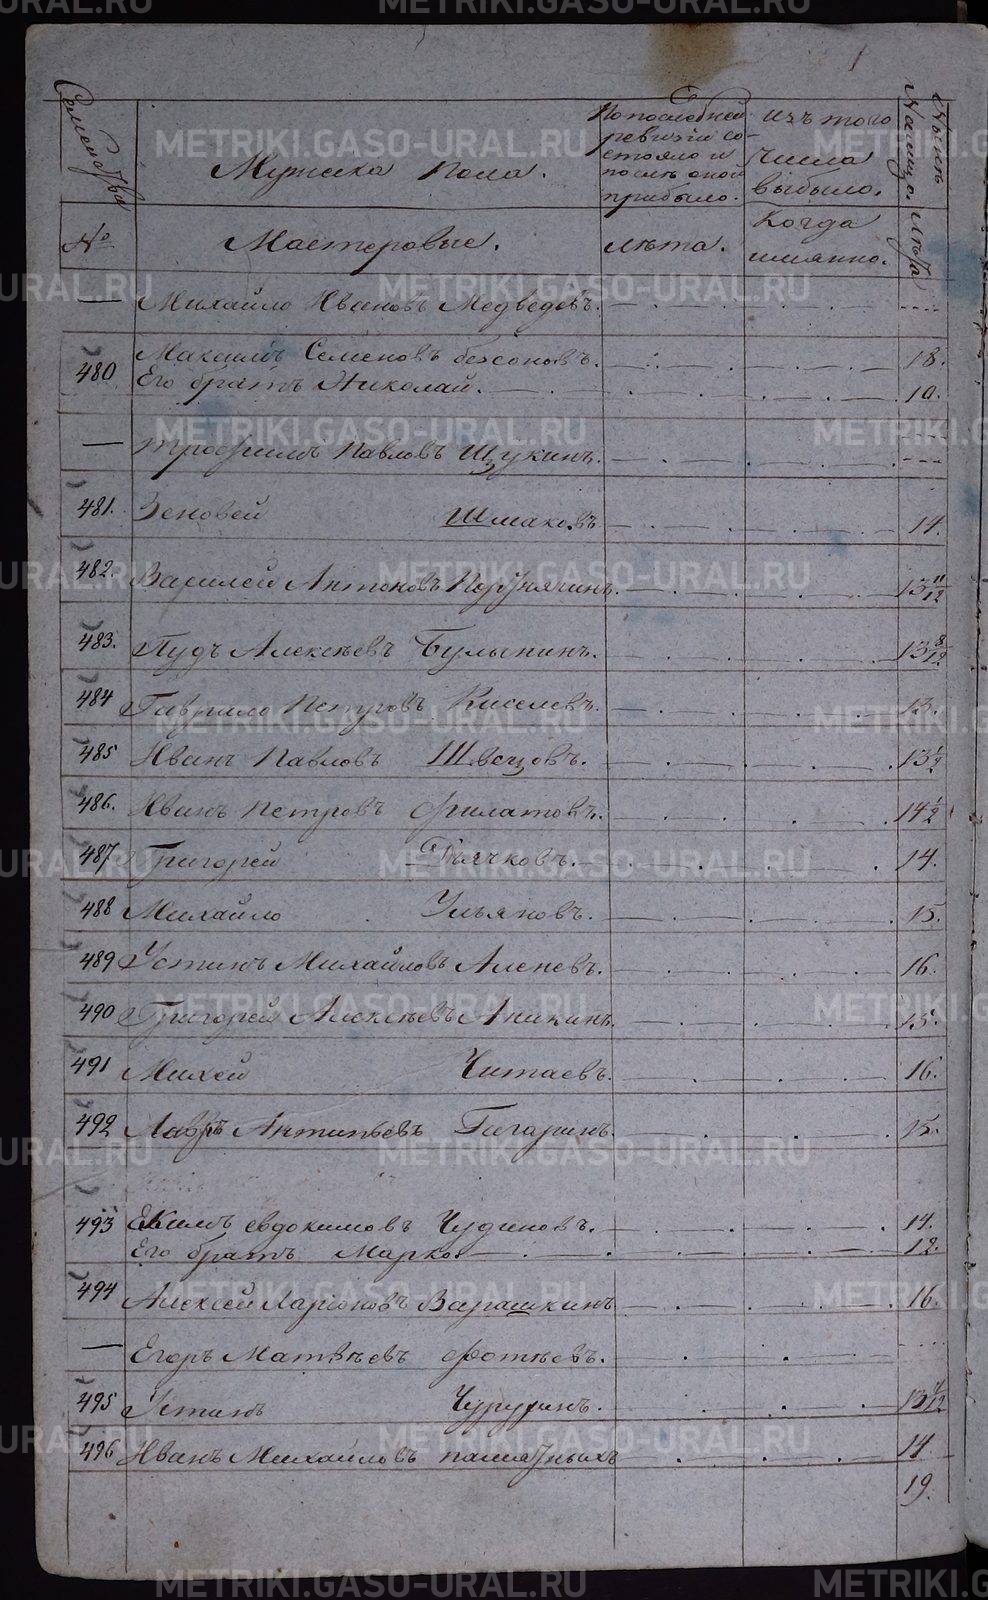 1
Семействы
№
Мужеска пола.
Мастеровые.
По последней ревизии состояло и после оной прибыло.
лѣта.
Изъ того числа выбыло.
Когда имянно.
Нынѣ налицо.
лѣта
— Михайло Ивановъ Медведевъ. — — — ----
480 Максимъ Семеновъ безсоновъ. — — 18.
Его братъ Николай. — — 10.
— Трофимъ Павловъ Щукинъ. — — ---
481. Зеновей Шмаковъ — — 14.
482. Василей Антоновъ — — 13 11/12
483. Пудъ Алексѣевъ Булынинъ. — — 13 8/12
484 Гаврило Петровъ Киселевъ. — — 13.
485 Иванъ Павловъ Швецовъ. — — 13 1/2
486. Иванъ Петровъ Филатовъ. — — 14 1/2
487 Григорей Дьячковъ. — — 14.
488 Михайло Ульяновъ. — — 15.
489 Устинъ Михайловъ Аленевъ. — — 16.
490 Григорей Алексѣевъ Аникинъ. — — 15.
491 Михей Читаевъ. — — 16.
492 Лавръ Антипьевъ Гагаринъ. — — 15.
493 Екимъ Евдокимовъ Чудиновъ. — — 14.
Его братъ Марко. — — 12.
494 Алексей Ларіоновъ Варашкинъ — — 16.
— Егоръ Матвѣевъ Фотѣевъ. — — ---
495 Устинъ Чуруринъ. — — 13 7/12
496 Иванъ Михайловъ памятныхъ — — 14.
19.
METRIKI.GASO-URAL.RU